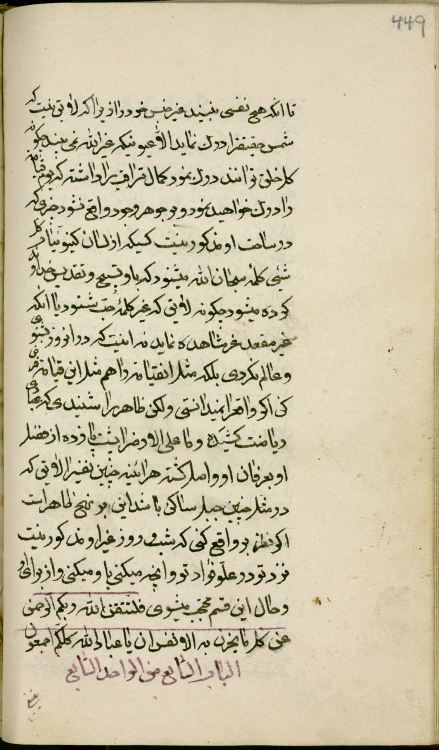 449
تا انکه هیچ نفسی نبیند غیر جنس خود را زیرا که لایق نیست که
شمس حقیقترا درك نماید الا عیونیکه غیر الله نمی بیند چگونه
کل خلق توانند درك نمود کمال مراقب را داشته که یوم قیامة
را درك خواهید نمود و بر جوهر وجود واقع نشود حزنی که
در ساحت او مذکور نیست کسیکه از لسان کینونیات کل
شئی کلمه سبحان الله میشنود که باو تسبیح و تقدیس خداوند
کرده میشود چگونه لایق که غیر کلمه حب شنود یا انکه
غیر مقعد عز مشاهده نماید نه اینست که در انروز
و عالم نگردی بلکه مثل انقیامة را هم مثل این قیامة فرض
کن اگر واقع را نمیدانستی ولکن ظاهر را شنیدی که
ریاضت کشیده و باعلی الارض
او بعرفان او واصل گشته هرائینه چنین نفسیرا لایق که
در مثل چنین جبل ساکن باشد این بر نهج ظاهر است
اگر نظر بر واقع کنی که شب و روز غیر او مذکور نیست
نزد تو در علو فؤاد تو و آنچه میکنی باو میکنی و از برای او
و حال این قسم محتجب میشوی فلتتقن الله ربکم الرحمن
عن کل ما یحزن به الانفس ان یا عباد الله کلکم اجمعون
الباب السابع من الواحد السابع